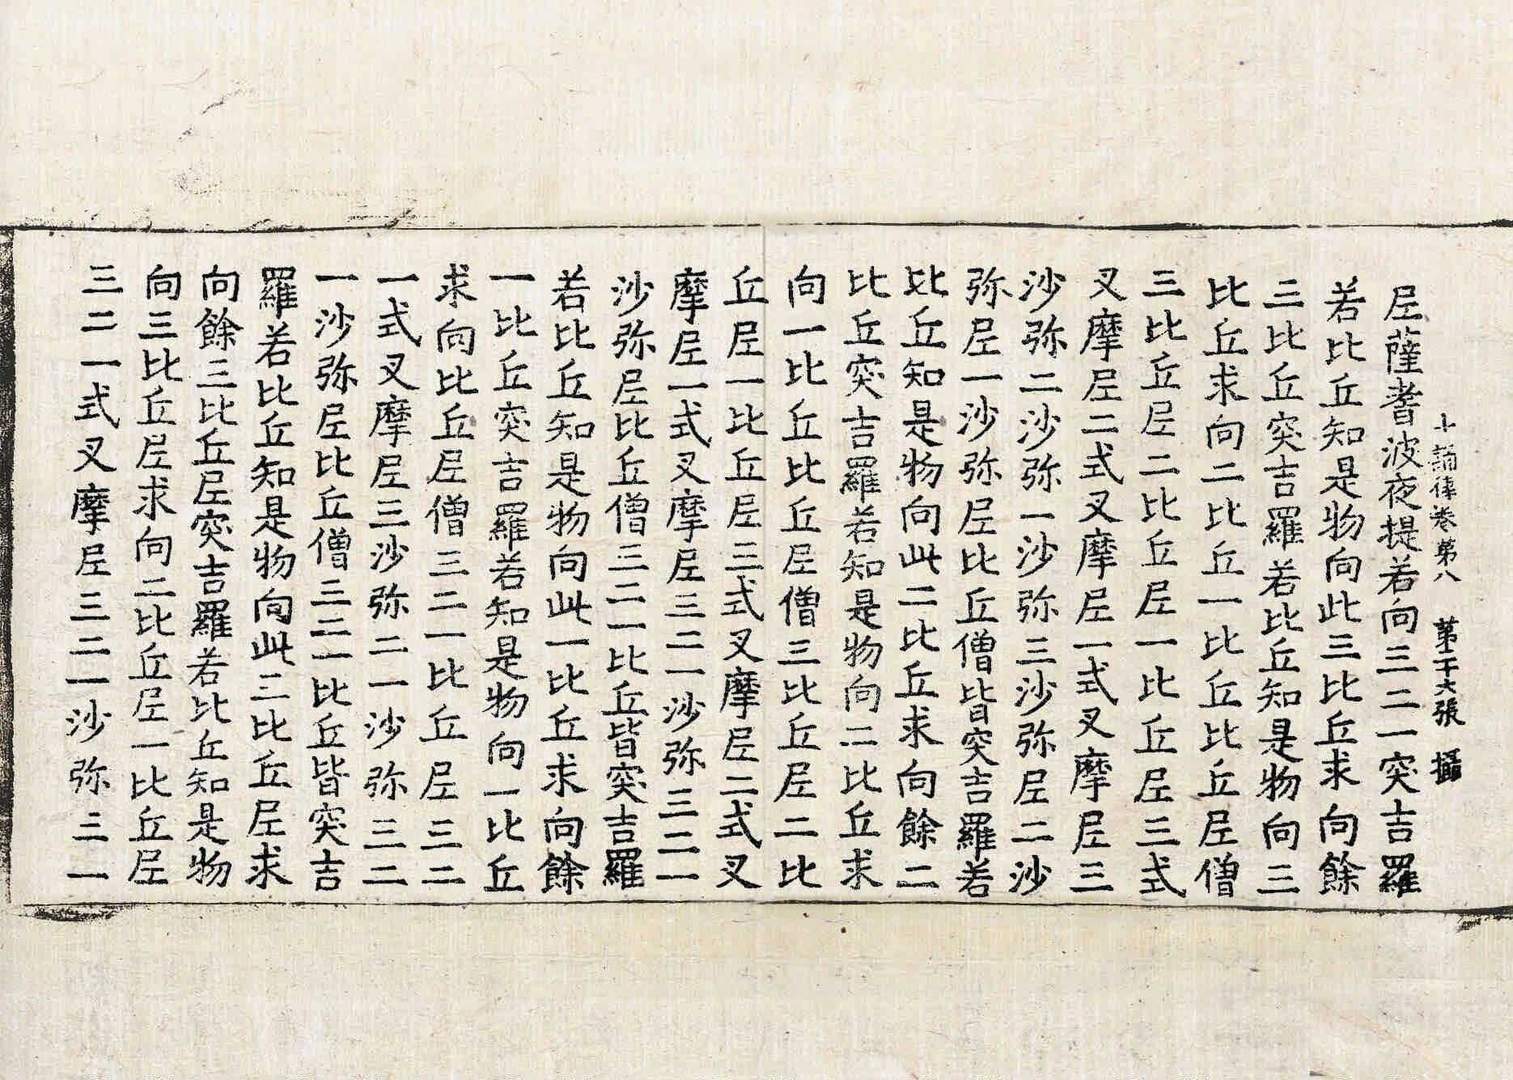 十誦律卷第八　第二十六張　攝
尼薩耆波夜提若向三二一突吉羅
若比丘知是物向此三比丘求向餘
三比丘突吉羅若比丘知是物向三
比丘求向二比丘一比丘比丘尼僧
三比丘尼二比丘尼一比丘尼三式
叉摩尼二式叉摩尼一式叉摩尼三
沙弥二沙弥一沙弥三沙弥尼二沙
弥尼一沙弥尼比丘僧皆突吉羅若
比丘知是物向此二比丘求向餘二
比丘突吉羅若知是物向二比丘求
向一比丘比丘尼僧三比丘尼二比
丘尼一比丘尼三式叉摩尼二式叉
摩尼一式叉摩尼三二一沙弥三二一
沙弥尼比丘僧三二一比丘皆突吉羅
若比丘知是物向此一比丘求向餘
一比丘突吉羅若知是物向一比丘
求向比丘尼僧三二一比丘尼三二
一式叉摩尼三沙弥二一沙弥三二
一沙弥尼比丘僧三二一比丘皆突吉
羅若比丘知是物向此三比丘尼求
向餘三比丘尼突吉羅若比丘知是物
向三比丘尼求向二比丘尼一比丘尼
三二一式叉摩尼三二一沙弥三二一